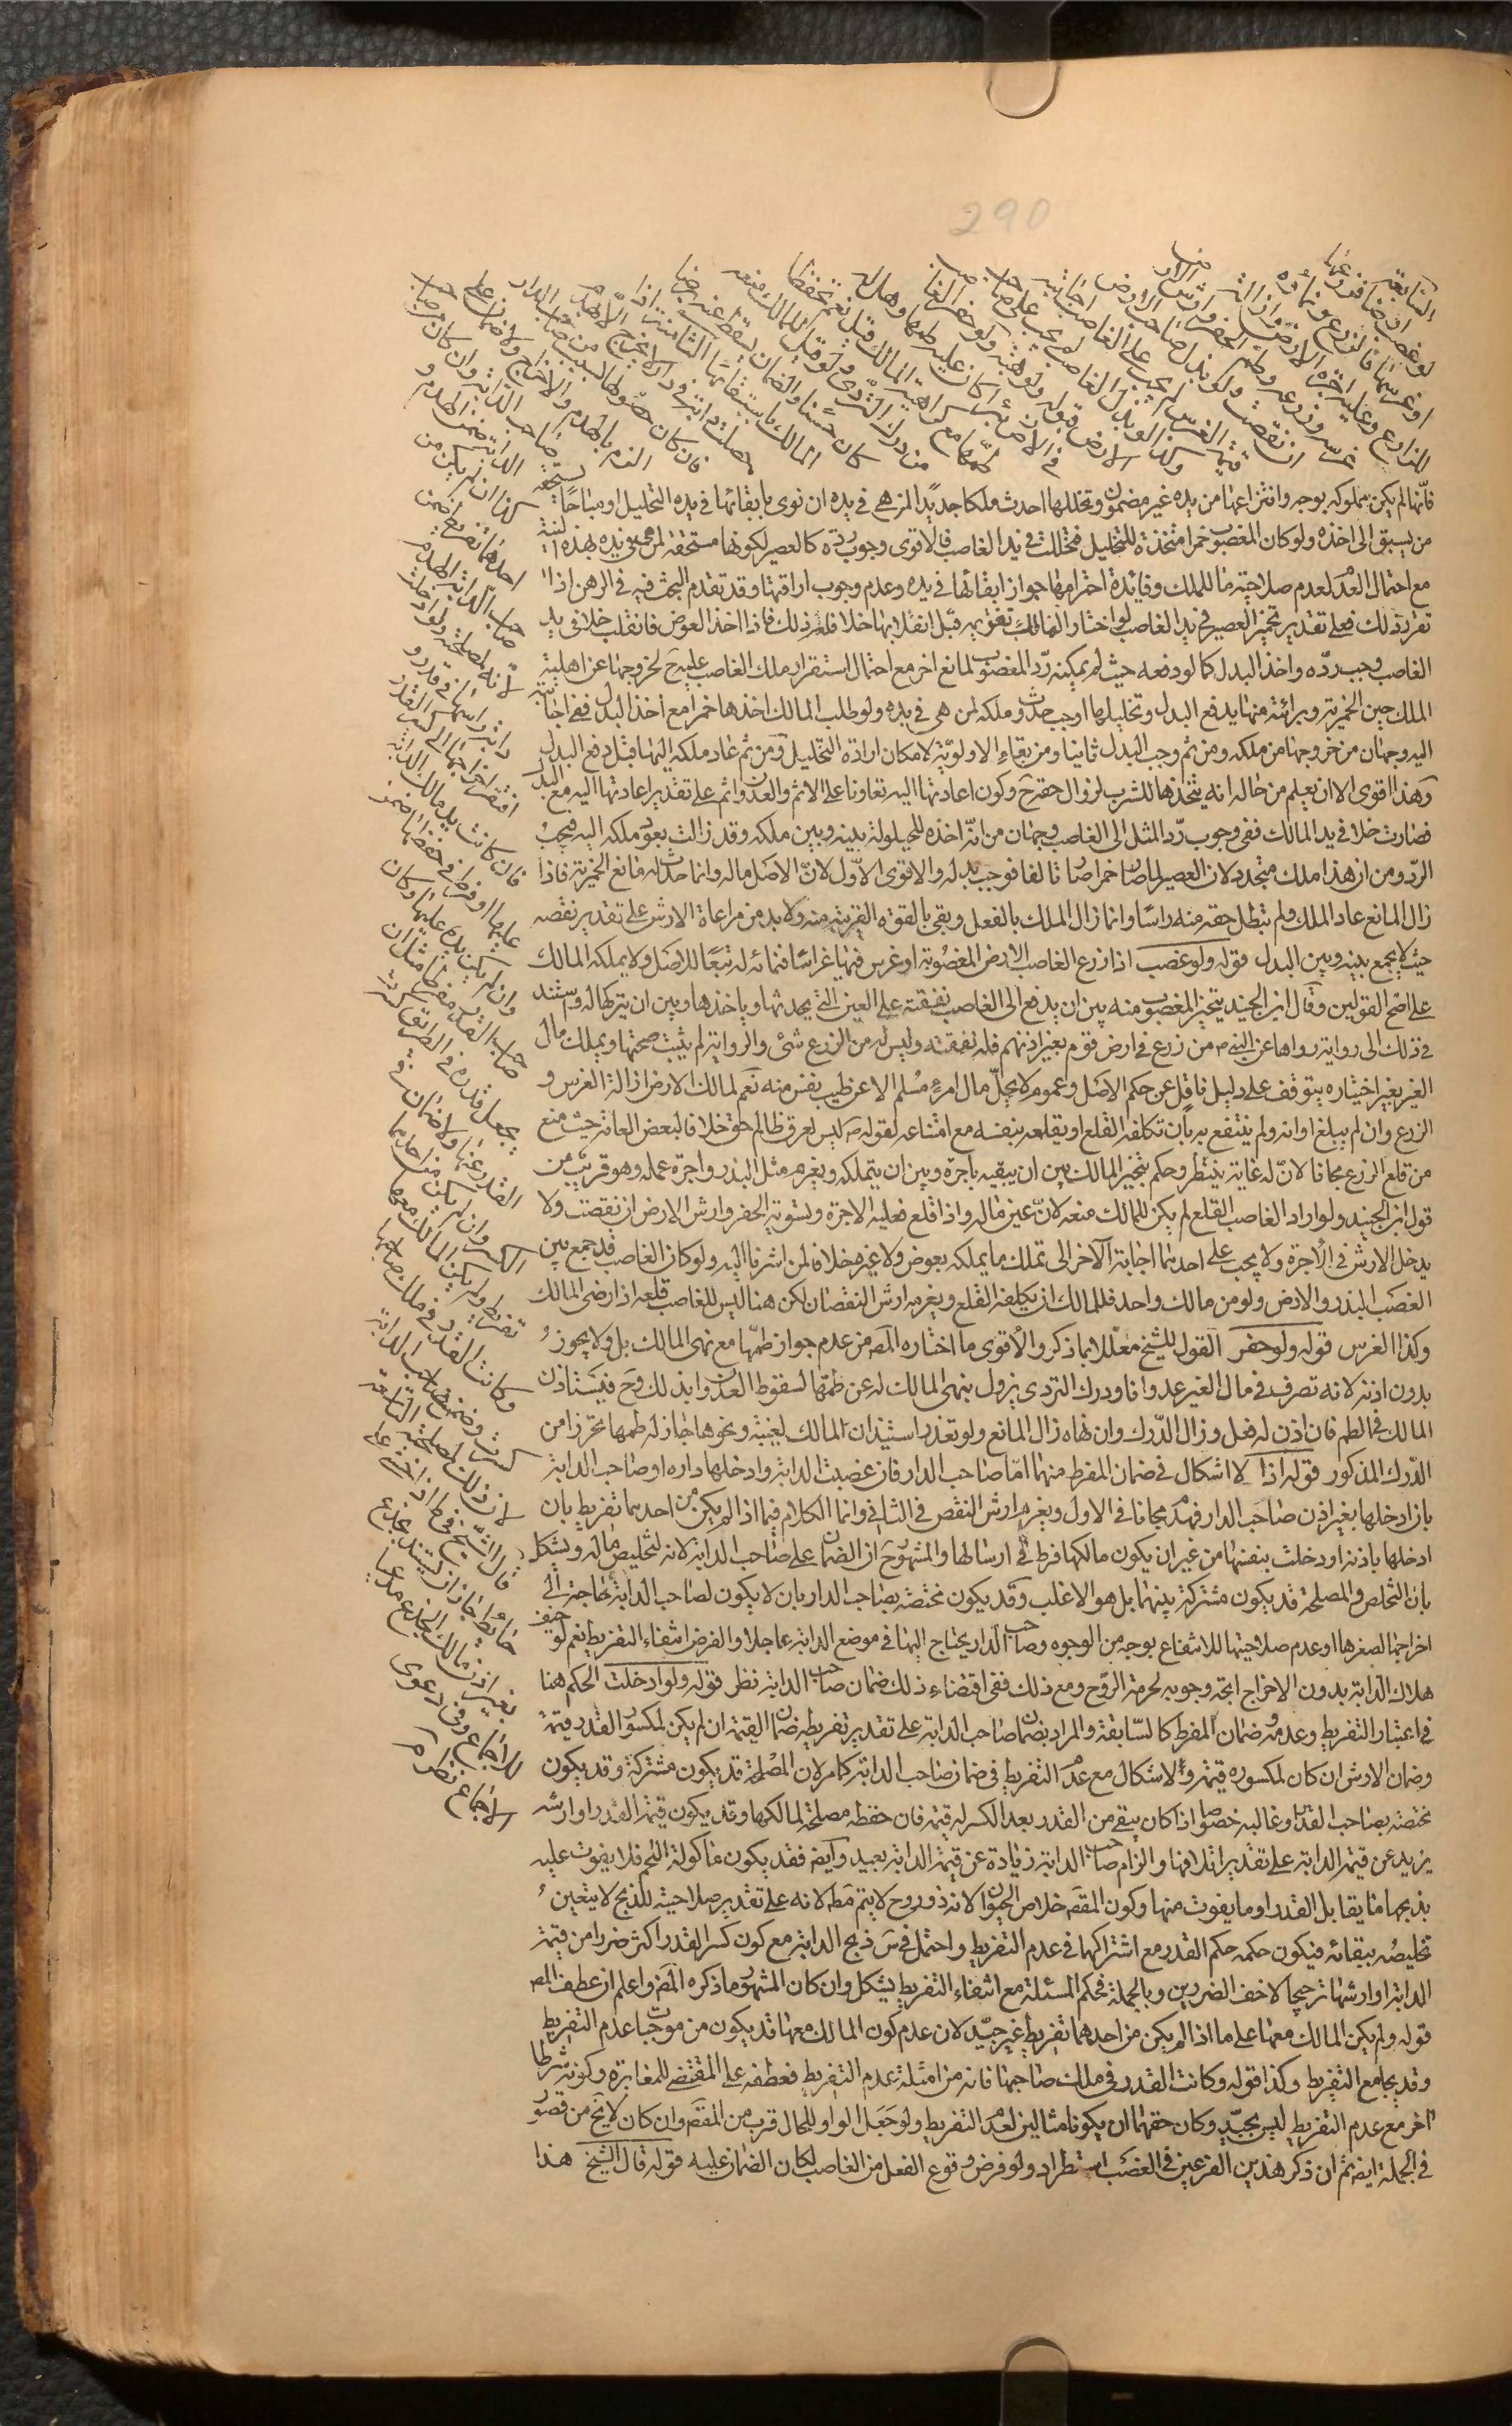 290
السابعة
لو غصب ارضا فزرعها
او غرسها فالزرع ونماؤه
للزارع وعليه اجرة الارض وازالة
غرسه وزرعه وطم الحفر وارش الارض
ان نقصت ولو بذل صاحب الارض
قيمة الغرس لم يجب على الغاصب اجابته
وكذا لو بذل الغاصب لم يجب على صاحب
الارض قبوله ولو هبة ولو حفر الغاصب
في الارض بئرا كان عليه طمها وهل له
طمها مع كراهية المالك قيل نعم تحفظا
من درك التردى ولو قيل للمالك منعه
كان حسنا والضمان يسقط عنه برضا
المالك باستبقائها الثامنة اذا
حصلت دابة في دار لا تخرج الا بهدم
فان كان حصولها بسبب من صاحب الدار
الزم بالهدم والاخراج ولا ضمان على
صاحب الدابة وان كان من صاحب
الدابة ضمن الهدم و
كذا ان لم يكن من
احدهما تفريط ضمن
صاحب الدابة الهدم
لانه لمصلحته ولو ادخلت
دابة راسها في قدر و
افتقر اخراجها الى كسر القدر
فان كانت يد مالك الدابة
عليها او فرط في حفظها ضمن
وان لم يكن يده عليها وكان
صاحب القدر مفرطا مثل ان
يجعل قدره في الطريق كسرت
القدر عنها ولا ضمان في
الكسر وان لم يكن من احدهما
تفريط ولم يكن المالك معها
وكانت القدر في ملك صاحبها
كسرت وضمن صاحب الدابة
لان ذلك لمصلحته التاسعة
قال الشيخ في ط اذا خشي على
حائط جاز ان يستند بجذع
بغير اذن مالك الجذع مدعيا
للاجماع وفي دعوى
الاجماع نظر
فانها لم يكن مملوكه بوجه وانتزاعها من يده غير مضمون وتخللها احدث ملكا جديدا لمن هي في يده ان نوى بابقائها في يده التخليل او مباحا يستحقه
من يسبق الى اخذه ولو كان المغصوب خمرا متخذة للتخليل فتخللت في يد الغاصب فالاقوى وجوب رده كالعصير لكونها مستحقة لمن هي في يده لهذه النية
مع احتمال العدم لعدم صلاحيته ما للملك وفائدة احترامها جواز ابقائها في يده وعدم وجوب اراقتها وقد تقدم البحث فيه في الرهن اذا
تقرر ذلك فعلى تقدير تخمير العصير في يد الغاصب لو اختار المالك تغريمه قبل انقلابها خلا فله ذلك فاذا اخذ العوض فانقلب خلا في يد
الغاصب وجب رده واخذ البدل كما لو دفعه حيث لم يمكنه رد المغصوب لمانع اخر مع احتمال استقرار ملك الغاصب عليه ح لخروجها عن اهلية
الملك حين الخمرية وبرائته منها بدفع البدل وتخليلها اوجب حدوث ملكه لمن هي في يده ولو طلب المالك اخذها خمرا مع اخذ البدل ففي اجابته
اليه وجهان من خروجها من ملكه ومن ثم وجب البدل ثانيا ومن بقاء الاولوية لامكان ارادة التخليل ومن ثم عاد ملكه اليها قبل دفع البدل
وهذا اقوى الا ان يعلم من حاله انه يتخذها للشرب لزوال حقه ح وكون اعادتها اليه تعاونا على الاثم والعدوان ثم على تقدير اعادتها اليه مع البدل
فصارت خلا في يد المالك ففي وجوب رد المثل الى الغاصب وجهان من انه اخذه للحيلولة بينه وبين ملكه وقد زالت بعود ملكه اليه فيجب
الرد ومن ان هذا ملك متجدد لان العصير لما صار خمرا صار تالفا فوجب بدله والاقوى الاول لان الاصل ماله وانما حدث له مانع الخمرية فاذا
زال المانع عاد الملك ولم يبطل حقه منه راسا وانما زال الملك بالفعل وبقي بالقوة القريبة منه ولا بد من مراعاة الارش على تقدير نقصه
حيث لا يجمع بينه وبين البدل قوله ولو غصب اذا زرع الغاصب الارض المغصوبة او غرس فيها غراسا فنمائه له تبعا للاصل ولا يملكه المالك
على اصح القولين وقال ابن الجنيد يتخير المغصوب منه بين ان يدفع الى الغاصب نفقته على العين التي يحدثها وياخذها وبين ان يتركها له واستند
في ذلك الى رواية رواها عن النبي ص من زرع في ارض قوم بغير اذنهم فله نفقته وليس له من الزرع شئ والرواية لم يثبت صحتها وتملك مال
الغير بغير اختياره يتوقف على دليل ناقل عن حكم الاصل وعموم لا يحل مال امرئ مسلم الا عن طيب نفس منه نعم لمالك الارض ازالة الغرس و
الزرع وان لم يبلغ اوانه ولم ينتفع به بان تكلفه القلع او يقلعه بنفسه مع امتناعه لقوله ص ليس لعرق ظالم حق خلافا لبعض العامة حيث منع
من قلع الزرع مجانا لان له غاية ينتظر وحكم بتخير المالك بين ان يبقيه باجرة وبين ان يتملكه ويغرم مثل البذر واجرة عمله وهو قريب من
قول ابن الجنيد ولو اراد الغاصب القلع لم يكن للمالك منعه لانه عين ماله واذا قلع فعليه الاجرة وتسوية الحفر وارش الارض ان نقصت ولا
يدخل الارش في الاجرة ولا يجب على احدهما اجابة الاخر الى تملك ما يملكه بعوض ولا غيره خلافا لمن اشرنا اليه ولو كان الغاصب قد جمع بين
الغصب البذر والارض ولو من مالك واحد فللمالك ان يكلفه القلع ويغرمه ارش النقصان لكن هنا ليس للغاصب قلعه اذا رضى المالك
وكذا الغرس قوله ولو حفر القول للشيخ معللا بما ذكر والاقوى ما اختاره المص من عدم جواز طمها مع نهى المالك بل ولا يجوز
بدون اذنه لانه تصرف في مال الغير عدوانا ودرك التردى يزول بنهى المالك له عن طمها لسقوط العدوان بذلك وح فيستاذن
المالك في الطم فان اذن له فعل وزال الدرك وان نهاه زال المانع ولو تعذر استيذان المالك لغيبته ونحوها جاز له طمها تحرزا من
الدرك المذكور قوله اذا لا اشكال في ضمان المفرط منهما اما صاحب الدار فان غصب الدابة وادخلها داره او صاحب الدابة
بان ادخلها بغير اذن صاحب الدار فهدم مجانا في الاول ويغرم ارش النقص في الثاني وانما الكلام فيما اذا لم يكن من احدهما تفريط بان
ادخلها باذنه او دخلت بنفسها من غير ان يكون مالكها فرط في ارسالها والمشهور ح ان الضمان على صاحب الدابة لانه لتخليص ماله ويشكل
بان التخلص والمصلحة قد يكون مشتركة بينهما بل هو الاغلب وقد يكون مختصة بصاحب الدار بان لا يكون لصاحب الدابة حاجة الى
اخراجها لصغرها او عدم صلاحيتها للانتفاع بوجه من الوجوه وصاحب الدار يحتاج اليها في موضع الدابة عاجلا والفرض انتفاء التفريط نعم لو خيف
هلاك الدابة بدون الاخراج اتجه وجوبه لحرمة الروح ومع ذلك ففي اقتضاء ذلك ضمان صاحب الدابة نظر قوله ولو ادخلت الحكم هنا
في اعتبار التفريط وعدمه وضمان المفرط كالسابقة والمراد بضمان صاحب الدابة على تقدير تفريطه ضمان القيمة ان لم يكن لمكسور القدر قيمة
وضمان الارش ان كان لمكسوره قيمة والاشكال مع عدم التفريط في ضمان صاحب الدابة كما مر لان المصلحة قد يكون مشتركة وقد يكون
مختصة بصاحب القدر وغالبه خصوصا اذا كان يبقى من القدر بعد الكسر له قيمة فان حفظه مصلحة لمالكها وقد يكون قيمة القدر او ارشه
يزيد عن قيمة الدابة على تقدير اتلافها والزام صاحب الدابة زيادة عن قيمة الدابة بعيد وايضه فقد يكون ماكولة اللحم فلا يفوت عليه
بذبحها ما يقابل القدر او ما يفوت منها وكون المقصد خلاص الحيوان لانه ذو روح لا يتم مطه لانه على تقدير صلاحيته للذبح لا يتعين
تخليصه ببقائه فيكون حكمه حكم القدر مع اشتراكهما في عدم التفريط واحتمل في س ذبح الدابة مع كون كسر القدر اكثر ضررا من قيمة
الدابة او ارشها ترجيحا لاخف الضررين وبالجملة فحكم المسئلة مع انتفاء التفريط يشكل وان كان المشهور ما ذكره المص واعلم ان عطف المص
قوله ولم يكن المالك معها على ما اذا لم يكن من احدهما تفريط غير جيد لان عدم كون المالك معها قد يكون من موجبات عدم التفريط
وقد يجامع التفريط وكذا قوله وكانت القدر في ملك صاحبها فانه من امثلة عدم التفريط فعطفه على المقتضي للمغايرة وكونه شرطا
اخر مع عدم التفريط ليس بجيد وكان حقهما ان يكونا مثالين لعدم التفريط ولو جعل الواو للحال قرب من المقصد وان كان لا يخ من قصور
في الجملة ايضه ثم ان ذكر هذين الفرعين في الغصب استطراد ولو فرض وقوع الفعل من الغاصب لكان الضمان عليه قوله قال الشيخ هذا